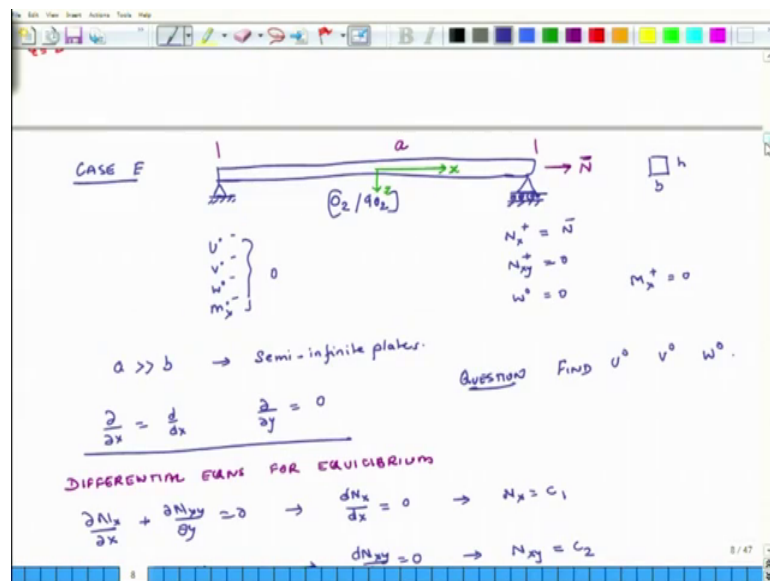 File Edit View Insert Actions Tools Help
B I
CASE E
a
x
z
N̄
h
b
[0₂/90₂]
U°⁻
V°⁻
W°⁻
Mx⁻
0
Nx⁺ = N̄
Nxy⁺ = 0
W° = 0
Mx⁺ = 0
a >> b → Semi-infinite plates.
QUESTION FIND U° V° W°.
∂/∂x = d/dx ∂/∂y = 0
DIFFERENTIAL EQNS FOR EQUICIBRIUM
∂Nx/∂x + ∂Nxy/∂y = 0 → dNx/dx = 0 → Nx = C₁
→ dNxy/dx = 0 → Nxy = C₂
8 / 47
8